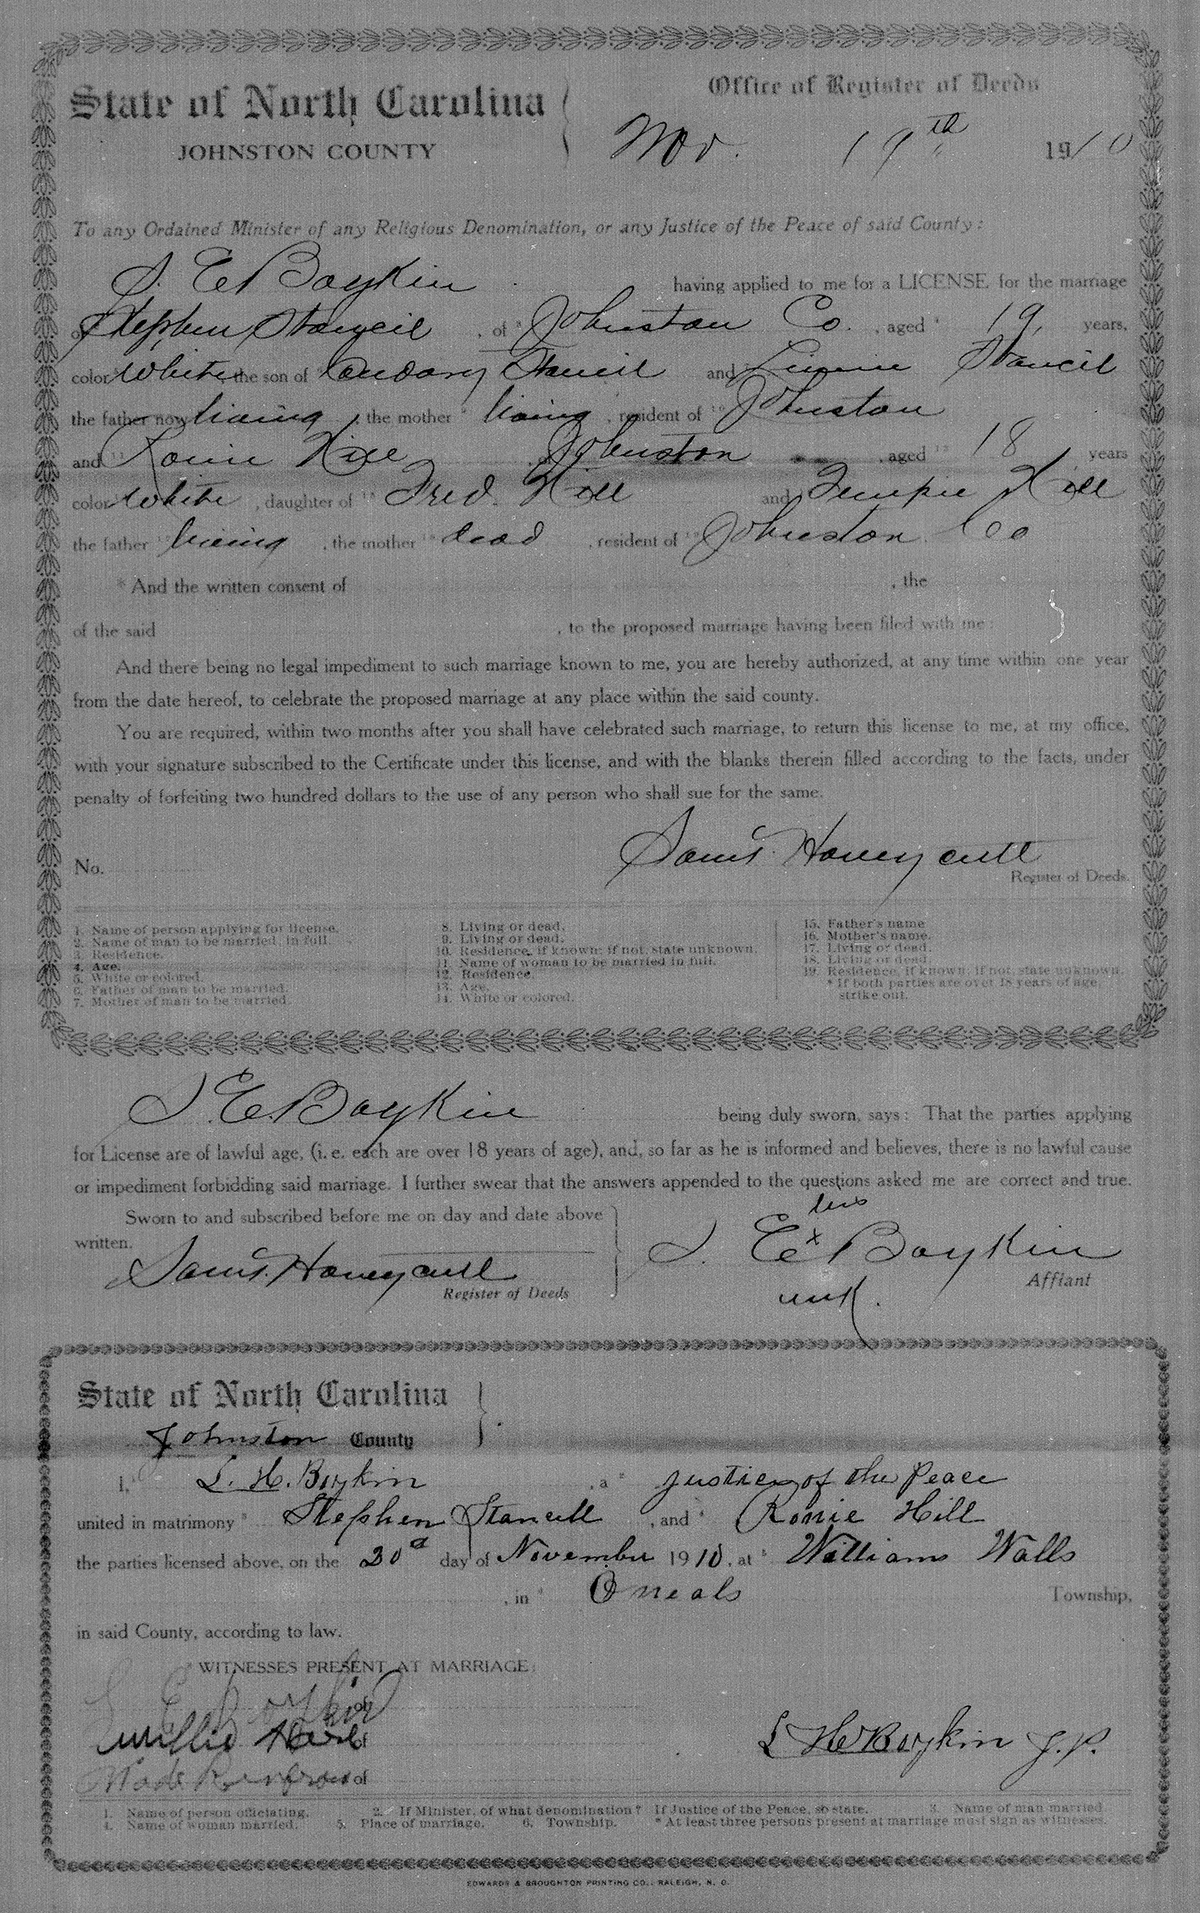 State of North Carolina
JOHNSTON COUNTY
Office of Register of Deeds
Nov. 19th 1910
To any Ordained Minister of any Religious Denomination, or any Justice of the Peace of said County:
S. E. Boykin having applied to me for a LICENSE for the marriage
of Stephen Stancil, of Johnston Co., aged 19, years,
color White, the son of Stancil and Stancil
the father now living, the mother living, resident of Johnston
and Ronie Hill Johnston aged 18 years
color White, daughter of Fred. Hill and Tempie Hill
the father living, the mother dead, resident of Johnston Co
* And the written consent of , the
of the said , to the proposed marriage having been filed with me:
And there being no legal impediment to such marriage known to me, you are hereby authorized, at any time within one year
from the date hereof, to celebrate the proposed marriage at any place within the said county.
You are required, within two months after you shall have celebrated such marriage, to return this license to me, at my office,
with your signature subscribed to the Certificate under this license, and with the blanks therein filled according to the facts, under
penalty of forfeiting two hundred dollars to the use of any person who shall sue for the same.
Saml. Honeycutt
No. Register of Deeds.
1. Name of person applying for license.
2. Name of man to be married, in full.
3. Residence.
4. Age.
5. White or colored.
6. Father of man to be married.
7. Mother of man to be married.
8. Living or dead.
9. Living or dead.
10. Residence, if known; if not, state unknown.
11. Name of woman to be married in full.
12. Residence.
13. Age.
14. White or colored.
15. Father's name
16. Mother's name.
17. Living or dead.
18. Living or dead.
19. Residence, if known; if not, state unknown.
* If both parties are over 18 years of age,
strike out.
S. E. Boykin being duly sworn, says: That the parties applying
for License are of lawful age, (i. e. each are over 18 years of age), and, so far as he is informed and believes, there is no lawful cause
or impediment forbidding said marriage. I further swear that the answers appended to the questions asked me are correct and true.
Sworn to and subscribed before me on day and date above
written.
Saml. Honeycutt
Register of Deeds
his
S. E x Boykin
Affiant
mrk.
State of North Carolina
Johnston County
I, L. H. Boykin, a Justice of the Peace
united in matrimony Stephen Stancill, and Ronie Hill
the parties licensed above, on the 20d day of November 1910, at William Walls
, in Oneals Township,
in said County, according to law.
WITNESSES PRESENT AT MARRIAGE:
S E Boykin of
Willie of
Wade Renfrow of
L H Boykin J. P.
1. Name of person officiating. 2. If Minister, of what denomination? If Justice of the Peace, so state. 3. Name of man married.
4. Name of woman married. 5. Place of marriage. 6. Township. * At least three persons present at marriage must sign as witnesses.
EDWARDS & BROUGHTON PRINTING CO., RALEIGH, N. C.